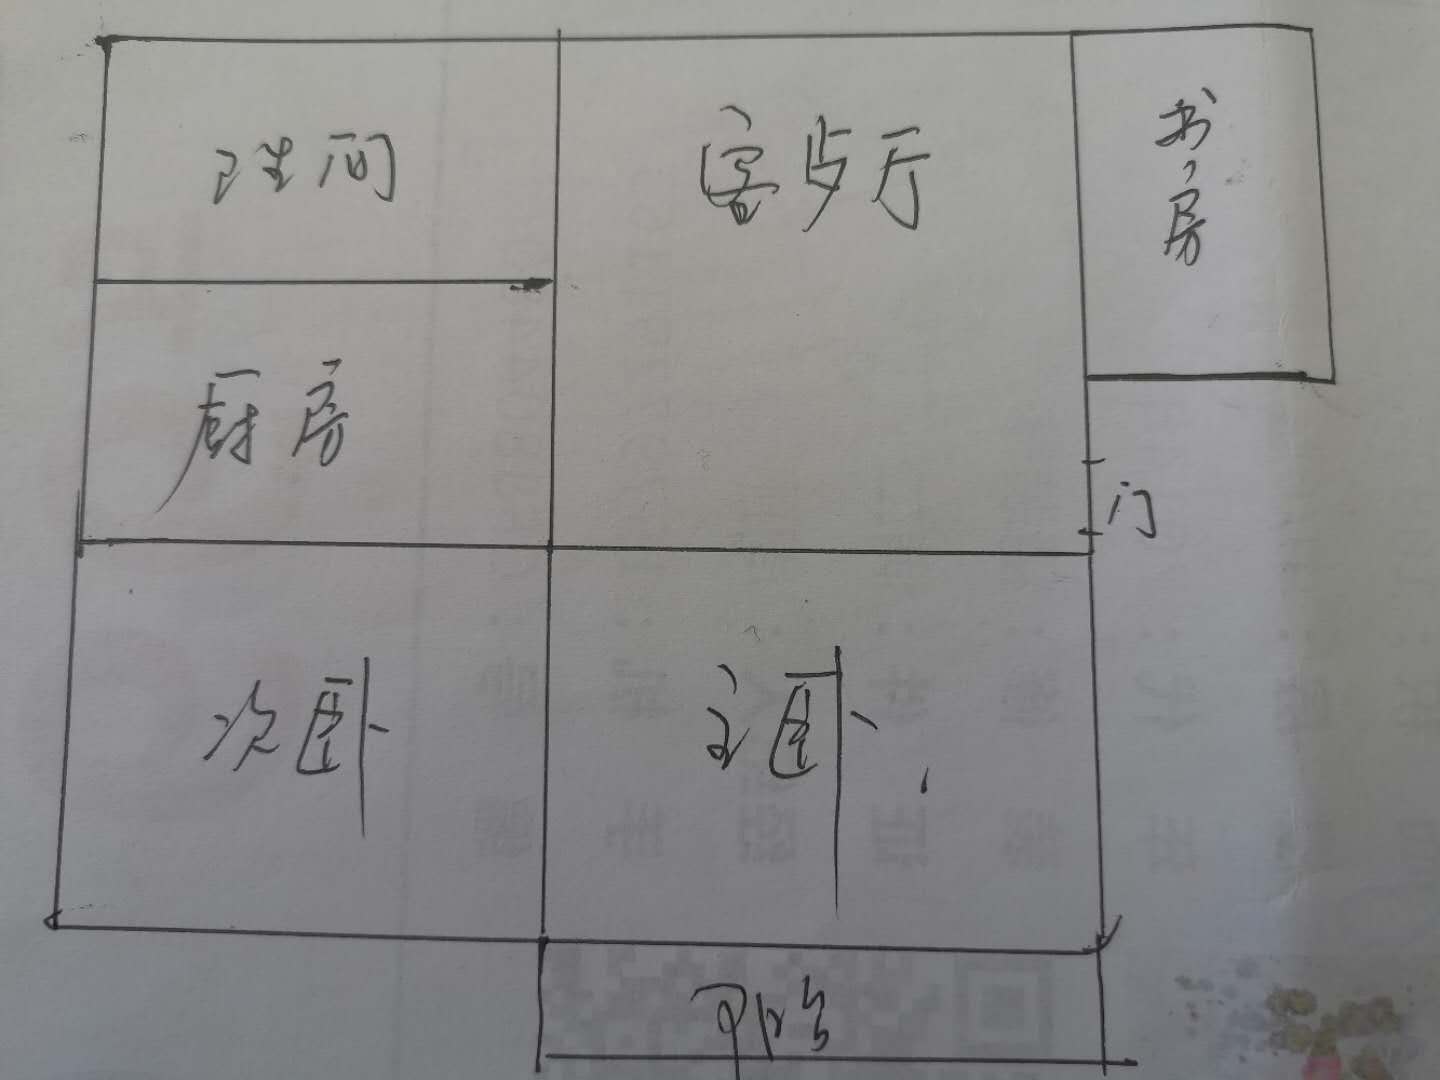 卫生间
客步厅
书房
厨房
门
次卧
主卧
阳台